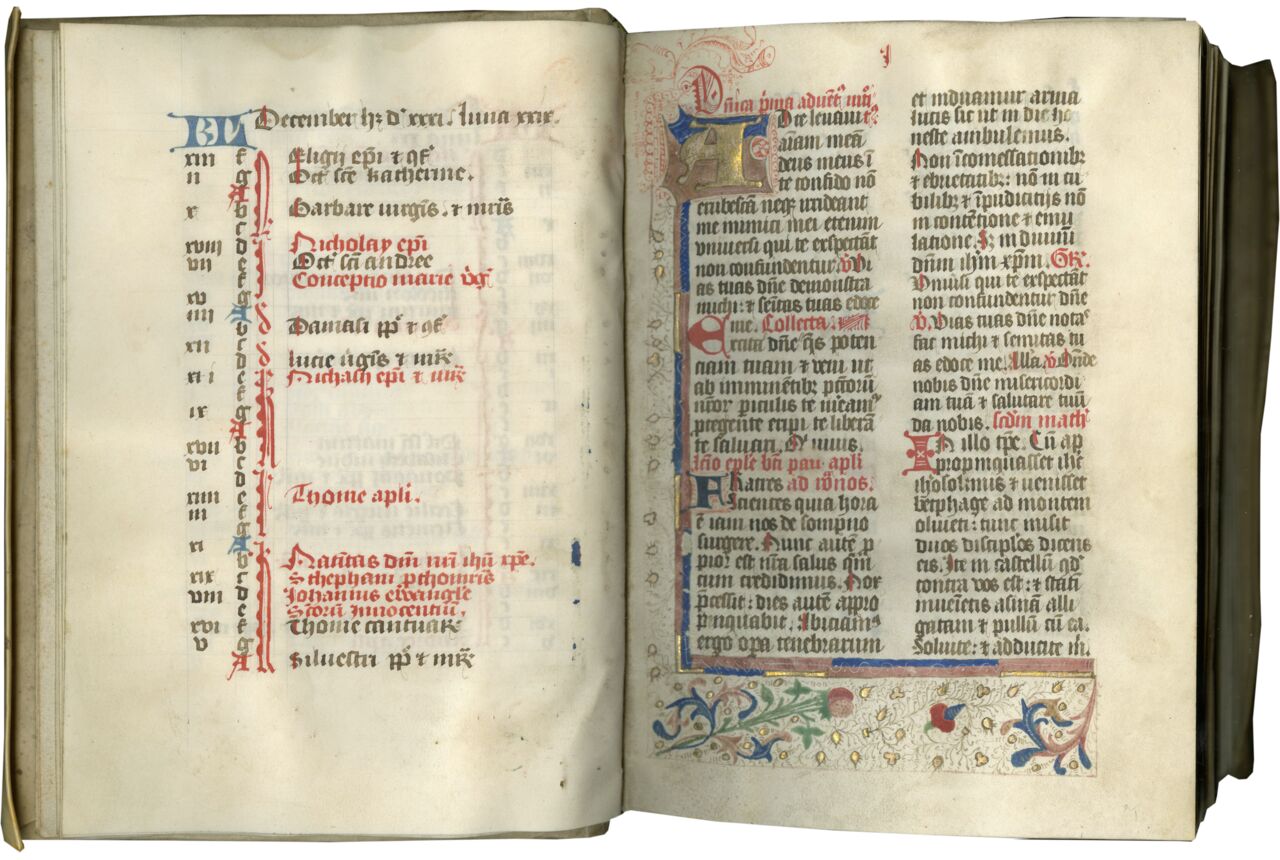 KL December hꝫ dˢ xxxi. luna xxix.
xiii f Eligii ep̄i ⁊ ɔf̄
ii g Oct̄ sc̄e katherine.
A
x b Barbare uirgīs. ⁊ mr̄is
c
xviii d Nicholay ep̄i
vii e Oct̄ sc̄i andree
f Conceptio marie v̄ḡ
xv g
iiii A
b Damasi pp̄ ⁊ ɔf̄
xii c
d lucie u̅gīs ⁊ mr̄
xi i e Nichasii ep̄i ⁊ mr̄
f
ix g
A
xvii b
vi c
d
xiiii e Thome apl̄i.
iii f
g
xi A
b Natiuitas dn̄i nr̄i ihū xp̄e.
xix c Stephani ꝓthomr̄is
viii d Johannis ewāngl̄e
e Sc̄orū Innocentiū.
xvi f Thome cantuar̄
v g
A Siluestri pp̄ ⁊ mr̄
Dn̄ica p̄ma aduēt᷒ dn̄i
Ad te leuaui
aīam meā
deus meus ī
te confido nō
erubescā neqꝫ irrideant
me inimici mei etenim
vniuersi qui te exspectāt
non confundentur. v̄ Vi
as tuas dn̄e demonstra
michi: ⁊ semitas tuas edoce
me. Collecta.
Excita dn̄e q̄s poten
ciam tuam ⁊ veni ut
ab imminētibꝫ pctōrum
nr̄or̄ ꝑiculis te mēam᷒
ꝓtegente eripi te liberā
te saluari. Qͥ viuis.
lc̄io ep̄le bt̄i pau apl̄i
Fratres ad ro̅nos.
Scientes quia hora
ē iam nos de sompno
surgere. Nunc autē ꝓ
pior est nr̄a salus qm̄
cum credidimus. Nox
p̄cessit: dies autē appro
pinquabit. Abiciam᷒
ergo opa tenebrarum
et induamur arma
lucis sic ut in die ho
neste ambulemus.
Non ī comessationibꝫ
⁊ ebrietatibꝫ: nō in cu
bilibꝫ ⁊ īpudicitijs nō
in contētione ⁊ emu
latione. Sꝫ induimi
dn̄m ihm̄ xp̄m. Gr̄.
Vniūsi qui te exspectāt
non confundentur dn̄e
v̄. Vias tuas dn̄e notas
fac michi ⁊ semitas tu
as edoce me. Alla v̄ Oñde
nobis dn̄e misericordi
am tuā ⁊ salutare tuū
da nobis. scdm̄ math̄
In illo tp̄e. Cū ap
propinquasset ihc̄
ihosolimis ⁊ uenisset
bethphage ad montem
oliueti: tunc misit
duos discip̄los dicens
eis. Ite in castellū qd̄
contra vos est: ⁊ statī
inueīetis asinā alli
gatam ⁊ pullū cū ea.
Soluite: ⁊ adducite m̄.